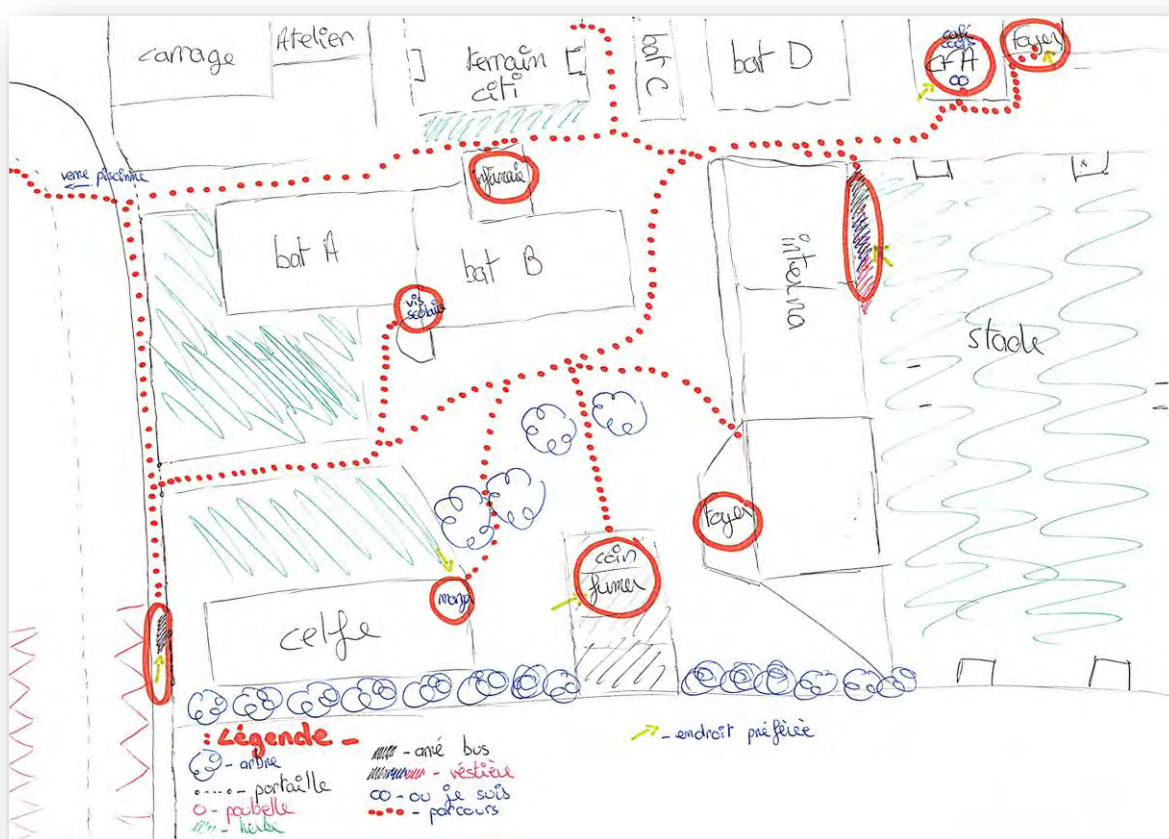 carrage
Atelier
terrain
citi
bat C
bat D
café
cours
CFA
foyer
verre piscinne
infarmaie
bat A
bat B
vis
scolaire
interna
stade
foyer
coin
fumer
manga
celfe
: Légende -
- arbre
- portaille
- poubelle
- herbe
- arré bus
- véstière
- ou je suis
- parcours
- endroit préférée